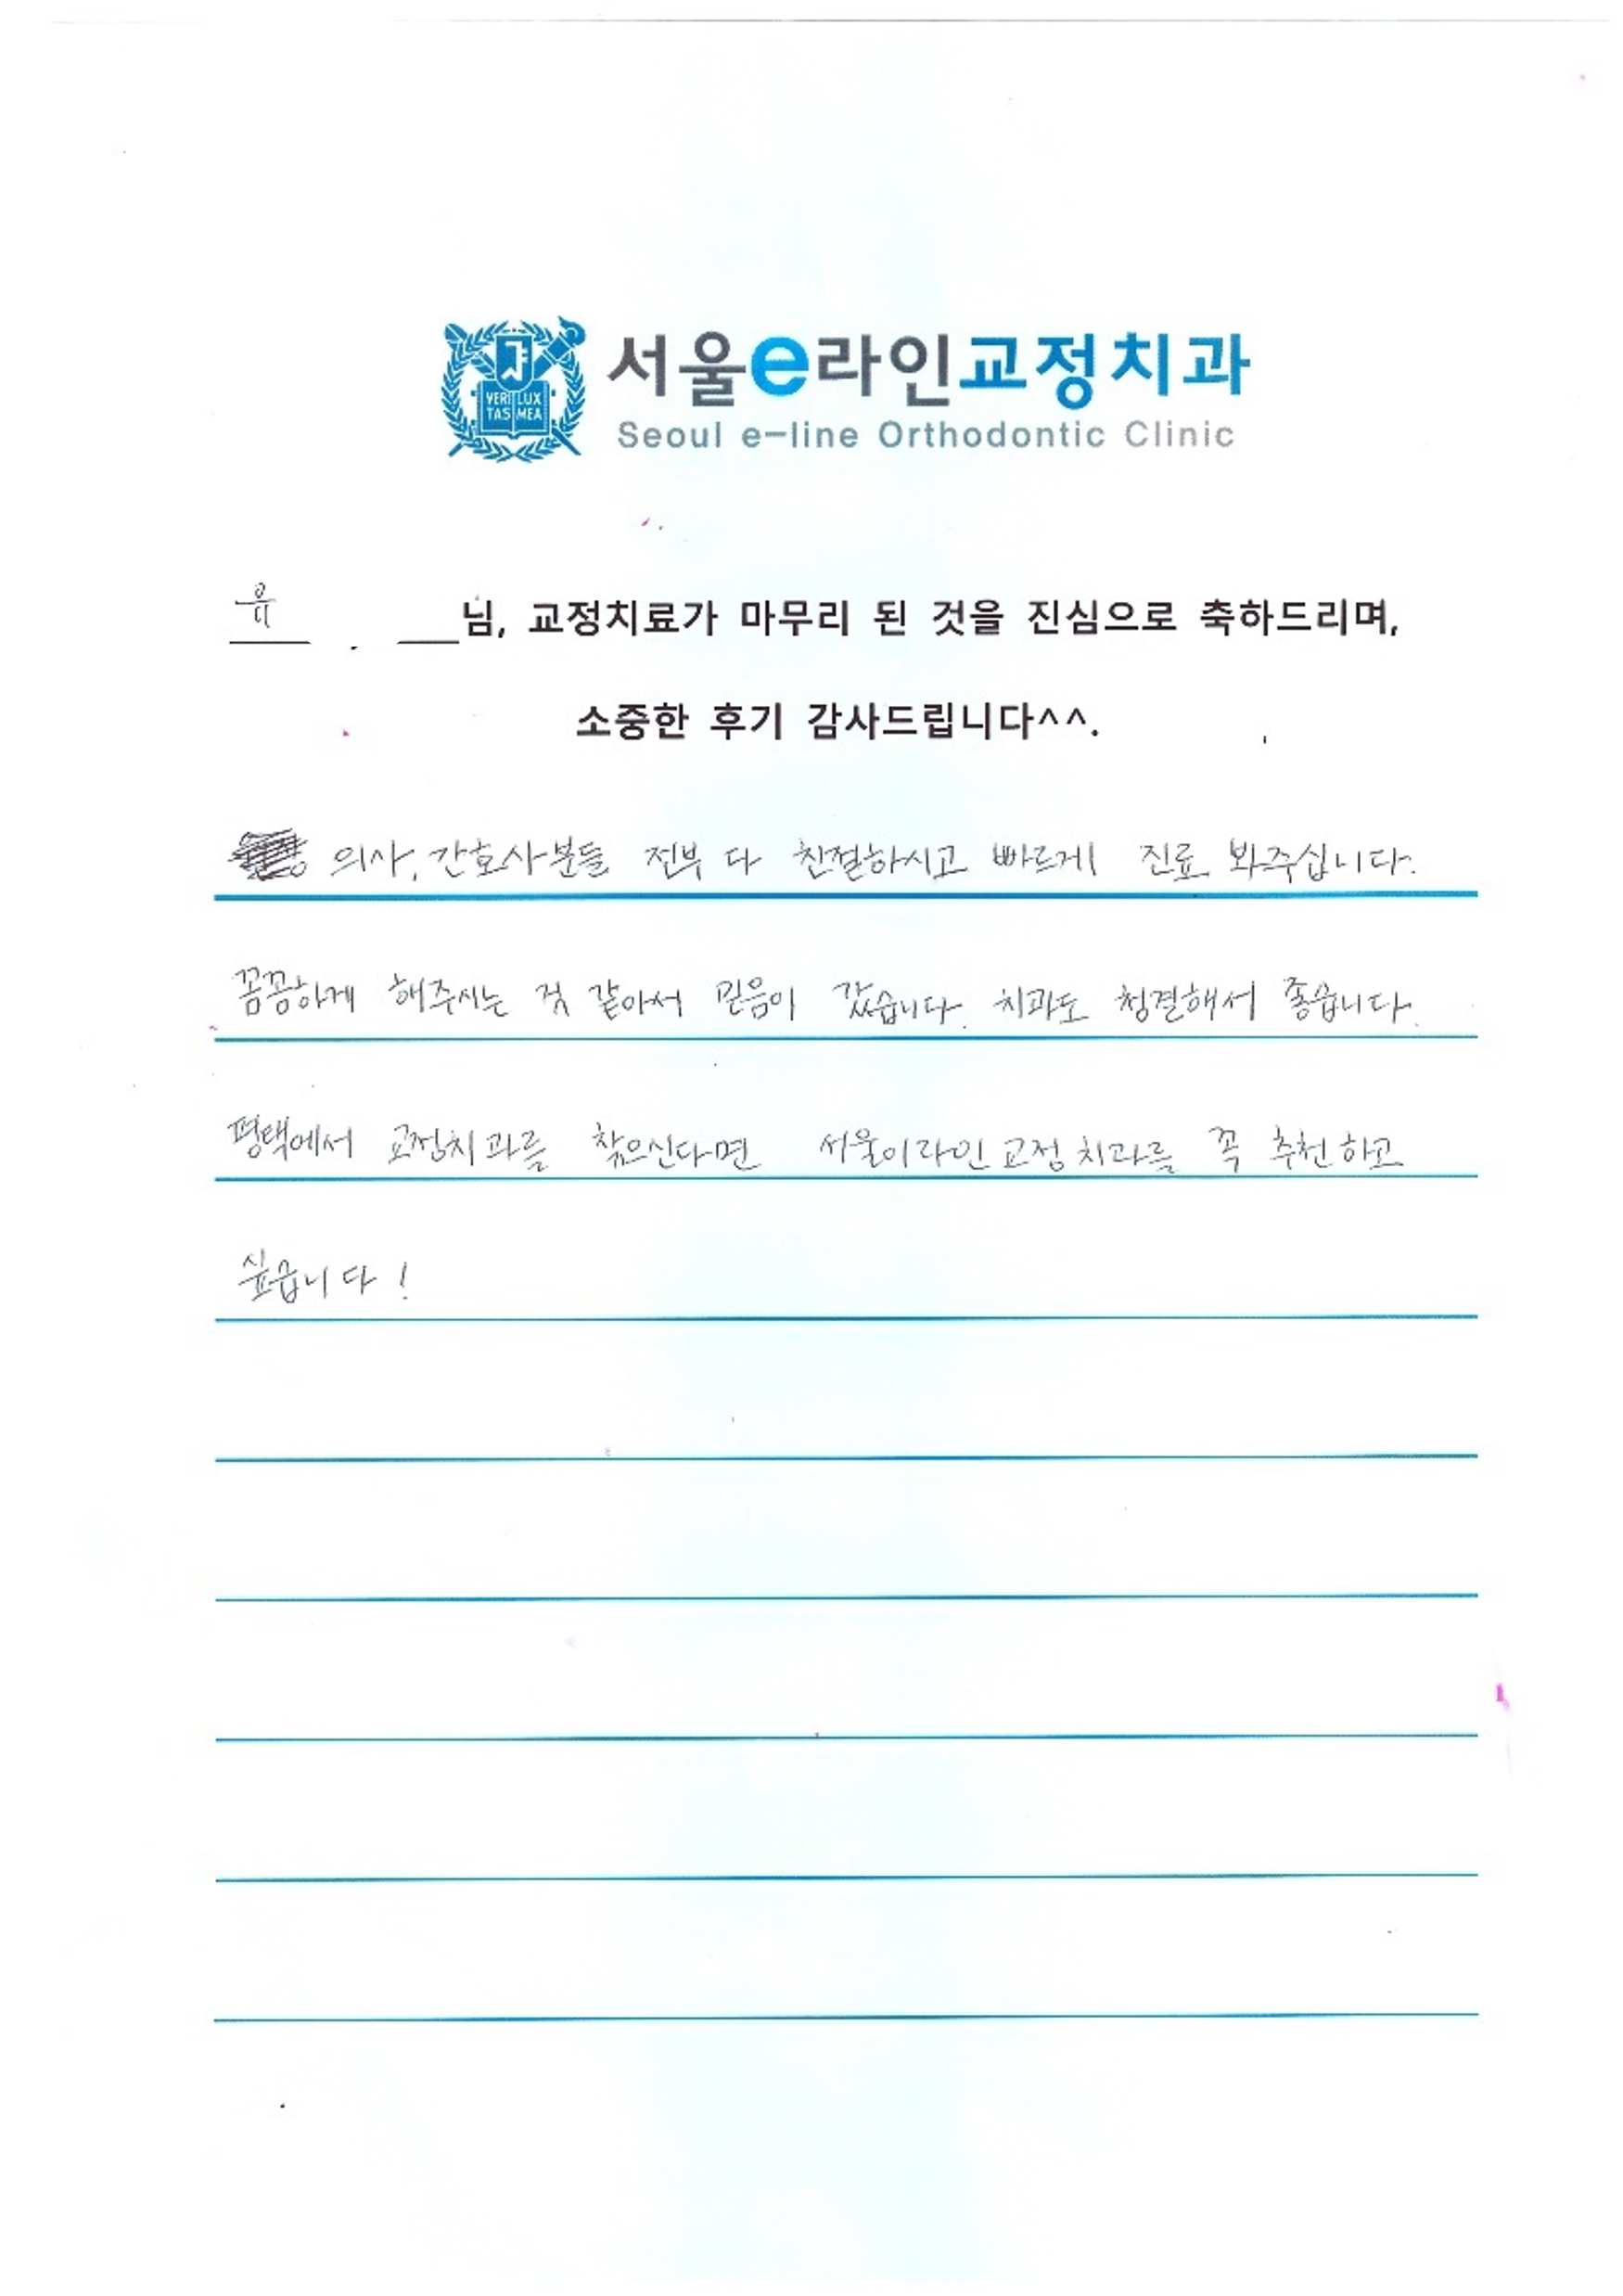 VERI LUX
TAS MEA
서울e라인교정치과
Seoul e-line Orthodontic Clinic
유 님, 교정치료가 마무리 된 것을 진심으로 축하드리며,
소중한 후기 감사드립니다^^.
의사, 간호사분들 전부 다 친절하시고 빠르게 진료 봐주십니다.
꼼꼼하게 해주시는 것 같아서 믿음이 갔습니다. 치과도 청결해서 좋습니다.
평택에서 교정치과를 찾으신다면 서울이라인교정치과를 꼭 추천하고
싶습니다!